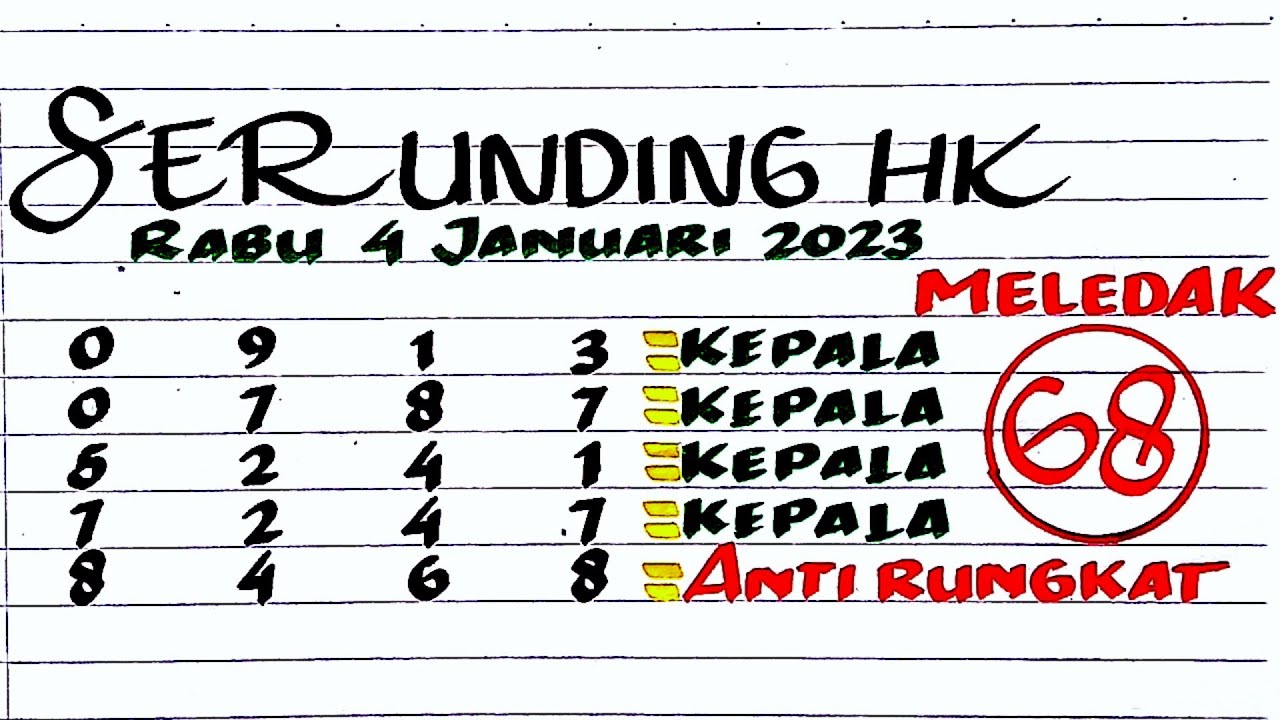 SERUNDING HK
RABU 4 JANUARI 2023
MELEDAK
0 9 1 3 = KEPALA
0 7 8 7 = KEPALA
68
5 2 4 1 = KEPALA
7 2 4 7 = KEPALA
8 4 6 8 = ANTI RUNGKAT